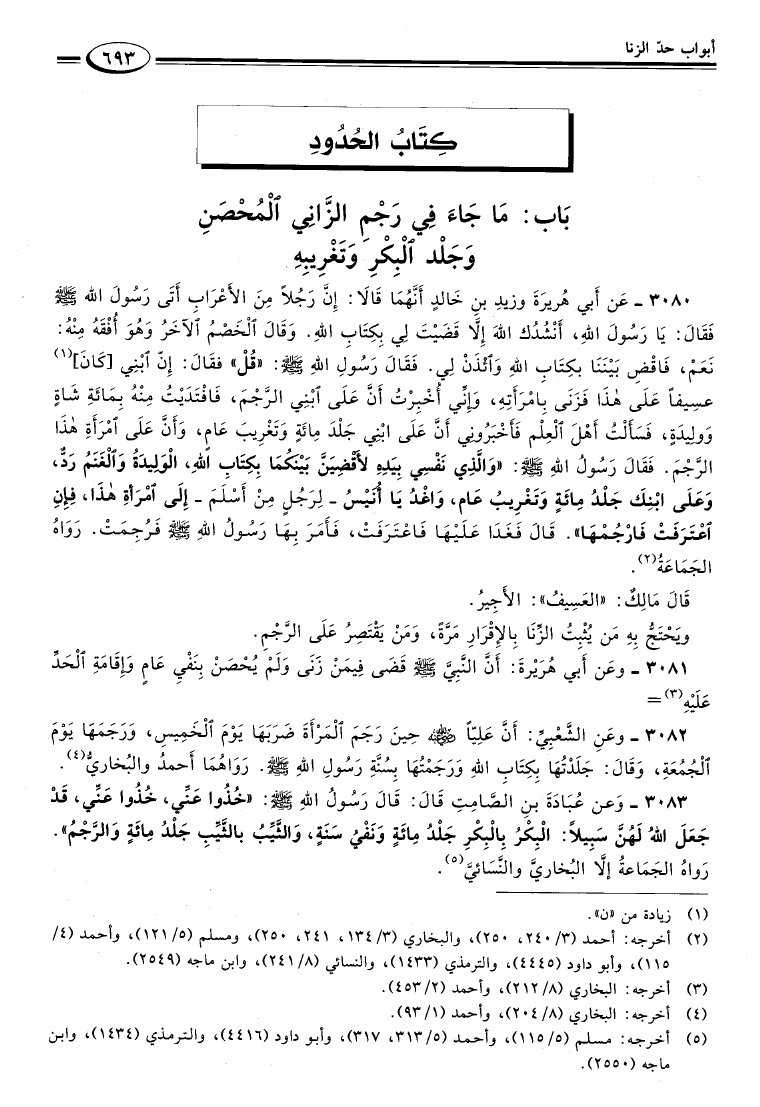 أبواب حدّ الزنا
٦٩٣
كِتَابُ الحُدُودِ
بَاب: مَا جَاءَ فِي رَجْمِ الزَّانِي ٱلْمُحْصَنِ
وَجَلْدِ ٱلْبِكْرِ وَتَغْرِيبِهِ
٣٠٨٠ ـ عَن أبي هُرَيرَةَ وزَيدِ بنِ خَالدٍ أنَّهُمَا قَالَا: إنَّ رَجُلاً مِنَ الأعْرَابِ أتَى رَسُولَ الله ﷺ
فَقَالَ: يَا رَسُولَ اللهِ، أنْشُدُكَ اللهَ إلَّا قَضَيْتَ لِي بِكِتَابِ اللهِ. وَقَالَ ٱلْخَصْمُ الآخَرُ وَهُوَ أفْقَهُ مِنْهُ:
نَعَمْ، فَاقْضِ بَيْنَنَا بِكِتَابِ اللهِ وَٱئْذَنْ لِي. فَقَالَ رَسُولِ اللهِ ﷺ: «قُلْ» فقَالَ: إنّ ٱبْنِي [كَانَ](١)
عسِيفاً عَلَى هٰذَا فَزَنَى بِامْرَأتِهِ، وَإنِّي أُخْبِرْتُ أنَّ عَلَى ٱبْنِي الرَّجْمَ، فَافْتَدَيْتُ مِنْهُ بِمَائَةِ شَاةٍ
وَوليدَةٍ، فَسَألْتُ أهْلَ ٱلْعِلْمِ فَأخْبَرُوني أنَّ عَلى ابْنِي جَلْدَ مِائَةٍ وَتَغْرِيبَ عَامٍ، وَأنَّ عَلَى ٱمْرَأةِ هٰذَا
الرَّجْمَ. فَقَالَ رَسُولُ اللهِ ﷺ: «وَالَّذِي نَفْسِي بِيَدِهِ لأقْضِيَنَّ بَيْنَكُمَا بِكِتَابِ اللهِ، الْوَلِيدَةُ وَٱلْغَنَمُ رَدٌّ،
وَعَلَى ابْنِكَ جَلْدُ مِائَةٍ وَتَغْرِيبُ عَامٍ، وَاغْدُ يَا أُنَيْسُ ـ لِرَجُلٍ مِنْ أسْلَمَ ـ إلَى ٱمْرَأةِ هٰذَا، فَإنِ
ٱعْتَرَفَتْ فَارْجُمْهَا». قَالَ فَغَدَا عَلَيْهَا فَاعْتَرَفَتْ، فَأمَرَ بِهَا رَسُولُ اللهِ ﷺ فَرُجِمَتْ. رَوَاهُ
الجَمَاعَةُ(٢).
قَالَ مَالِكٌ: «العَسِيفُ»: الأجِيرُ.
ويَحْتَجُّ بِهِ مَن يُثْبِتُ الزِّنَا بِالإقْرَارِ مَرَّةً، وَمَنْ يَقْتَصِرُ عَلَى الرَّجْمِ.
٣٠٨١ ـ وعَن أبي هُرَيْرةَ: أنَّ النَّبِيَّ ﷺ قَضَى فِيمَنْ زَنَى وَلَمْ يُحْصَنْ بِنَفْيِ عَامٍ وَإقَامَةِ ٱلْحَدِّ
عَلَيْهِ(٣)=
٣٠٨٢ ـ وعَنِ الشَّعْبِيِّ: أنَّ عَلِيّاً رضي الله عنه حِينَ رَجَمَ ٱلْمَرْأةَ ضَرَبَهَا يَوْمَ ٱلْخَمِيسِ، وَرَجَمَهَا يَوْمَ
ٱلْجُمُعَةِ، وَقَالَ: جَلَدْتُهَا بِكِتَابِ اللهِ وَرَجَمْتُهَا بِسُنَّةِ رَسُولِ اللهِ ﷺ. رَوَاهُمَا أحمدُ والبُخاريُّ(٤).
٣٠٨٣ ـ وَعن عُبَادَةَ بنِ الصَّامِتِ قَالَ: قَالَ رَسُولُ اللهِ ﷺ: «خُذُوا عَنِّي، خُذُوا عَنِّي، قَدْ
جَعَلَ اللهُ لَهُنَّ سَبِيلاً: الْبِكْرُ بِالْبِكْرِ جَلْدُ مِائَةٍ وَنَفْيُ سَنَةٍ، وَالثَّيِّبُ بالثَّيِّبِ جَلْدُ مِائَةٍ وَالرَّجْمُ».
رَواهُ الجَماعَةُ إلَّا البُخاريَّ والنَّسَائيَّ(٥).
(١) زيادة من «ن».
(٢) أخرجه: أحمد (٣/ ٢٤٠، ٢٥٠)، والبخاري (٣/ ١٣٤، ٢٤١، ٢٥٠)، ومسلم (٥/ ١٢١)، وأحمد (٤/
١١٥)، وأبو داود (٤٤٤٥)، والترمذي (١٤٣٣)، والنسائي (٨/ ٢٤١)، وابن ماجه (٢٥٤٩).
(٣) أخرجه: البخاري (٨/ ٢١٢)، وأحمد (٢/ ٤٥٣).
(٤) أخرجه: البخاري (٨/ ٢٠٤)، وأحمد (١/ ٩٣).
(٥) أخرجه: مسلم (٥/ ١١٥)، وأحمد (٥/ ٣١٣، ٣١٧)، وأبو داود (٤٤١٦)، والترمذي (١٤٣٤)، وابن
ماجه (٢٥٥٠).